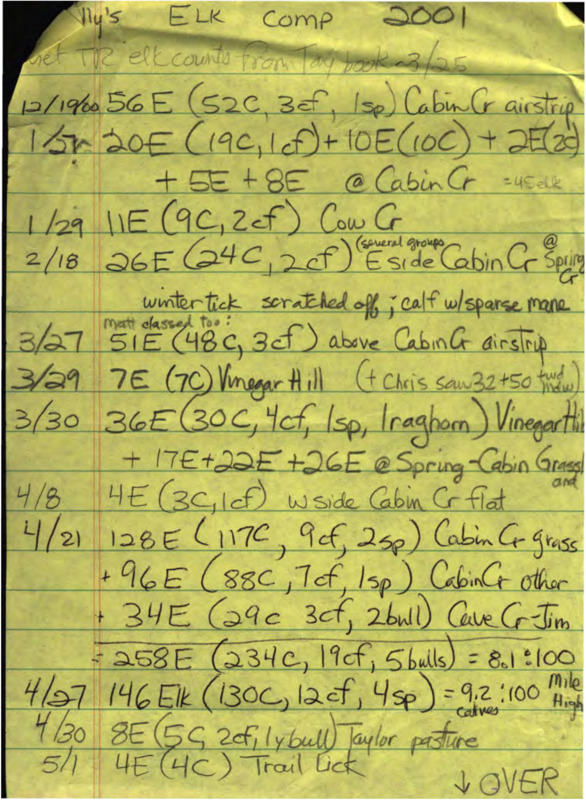 lly's ELK Comp 2001
get TR elk counts from Tay book ~3/25
12/19/00 56E (52C, 3cf, 1sp) Cabin Cr airstrip
1/5 20E (19C, 1cf) + 10E (10C) + 2E (2C)
+ 5E + 8E @ Cabin Cr =45 elk
1/29 11E (9C, 2cf) Cow Cr
2/18 26E (24C, 2cf) (several groups) E side Cabin Cr @ Spring Cr
winter tick scratched off; calf w/sparse mane
matt classed too:
3/27 51E (48C, 3cf) above Cabin Cr airstrip
3/29 7E (7C) Vinegar Hill (+ Chris saw 32+50 twd mdw)
3/30 36E (30C, 4cf, 1sp, 1raghorn) Vinegar Hill
+ 17E+22E+26E @ Spring-Cabin Grassland
4/8 4E (3C, 1cf) W side Cabin Cr flat
4/21 128E (117C, 9cf, 2sp) Cabin Cr grass
+ 96E (88C, 7cf, 1sp) Cabin Cr other
+ 34E (29C 3cf, 2bull) Cave Cr-Jim
= 258E (234C, 19cf, 5bulls) = 8.1:100
4/27 146 Elk (130C, 12cf, 4sp) = 9.2:100 calves Mile High
4/30 8E (5C, 2cf, 1ybull) Taylor pasture
5/1 4E (4C) Trail Lick
↓ OVER